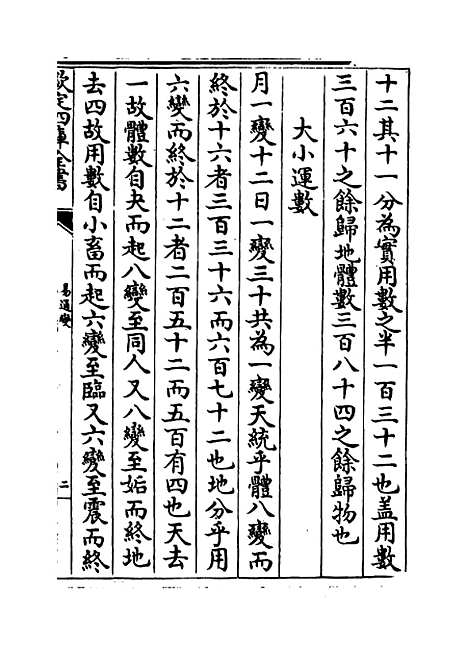 十二其十一分為實用數之半一百三十二也盖用數
三百六十之餘歸地體數三百八十四之餘歸物也
大小運數
月一變十二日一變三十共為一變天統乎體八變而
終於十六者三百三十六而六百七十二也地分乎用
六變而終於十二者二百五十二而五百有四也天去
一故體數自夬而起八變至同人又八變至姤而終地
去四故用數自小畜而起六變至臨又六變至震而終
欽定四庫全書
易通變
二